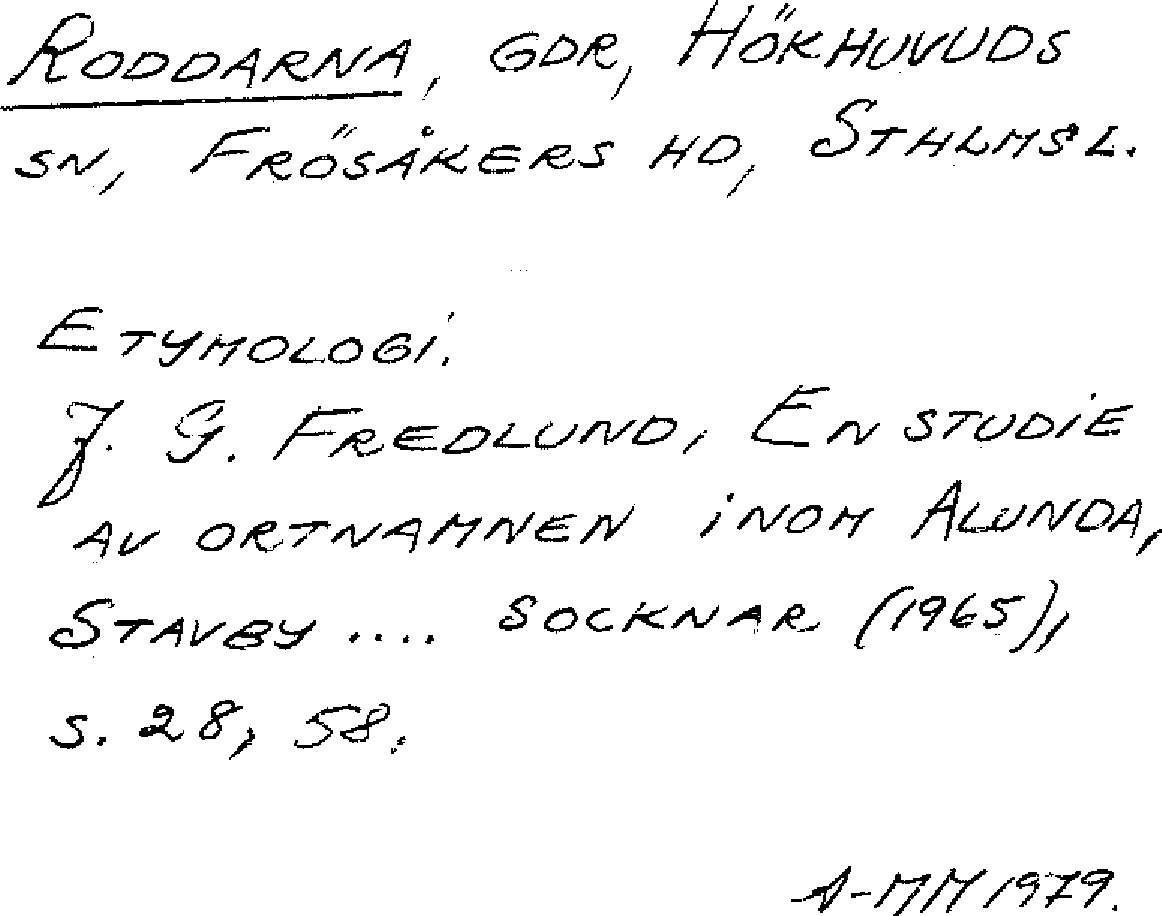 RODDARNA, GDR, HÖKHUVUDS
SN, FRÖSÅKERS HD, STHLMS L.
ETYMOLOGI.
J. G. FREDLUND, EN STUDIE
AV ORTNAMNEN INOM ALUNDA,
STAVBY .... SOCKNAR (1965),
S. 28, 58.
A-MM 1979.